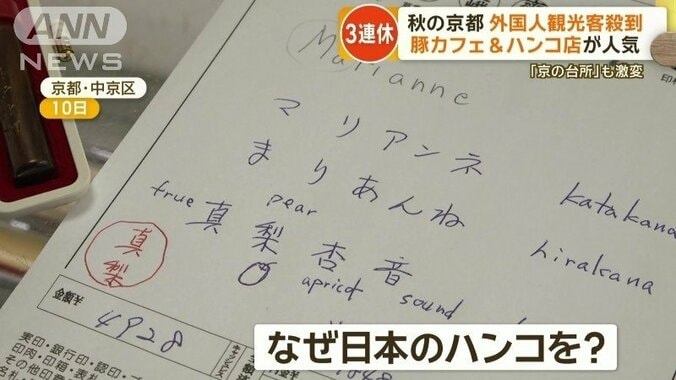 ANN
NEWS
京都・中京区
10日
3連休
秋の京都 外国人観光客殺到
豚カフェ＆ハンコ店が人気
「京の台所」も激変
Marianne
マリアンネ katakana
まりあんね hirakana
true pear
真梨杏音
apricot sound
真
梨
金額¥
4928
実印・銀行印・認
印肉・印箱・表札
その他印
なぜ日本のハンコを？